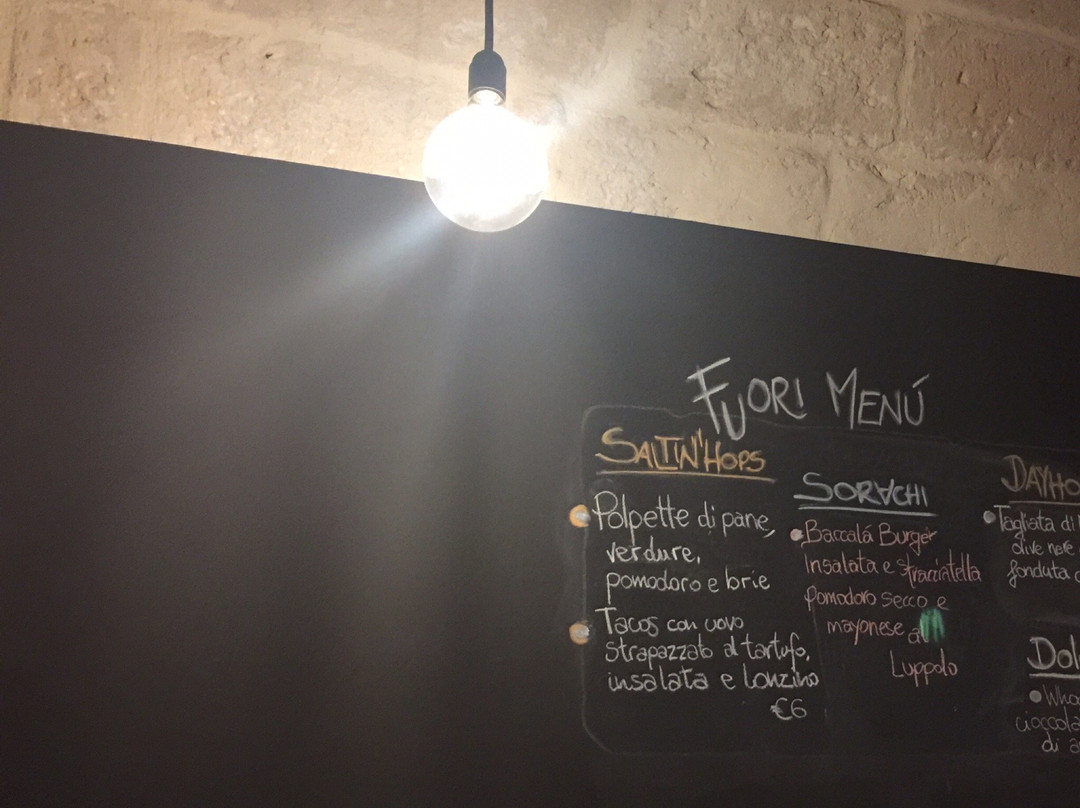 FUORI MENÚ
SALTIN'HOPS
Polpette di pane,
verdure,
pomodoro e brie
Tacos con uovo
strapazzato al tartufo,
insalata e lonzino
€6
SORACHI
Baccalá Burger
Insalata e stracciatella
pomodoro secco e
mayonese al
Luppolo
DAYHO
Tagliata di
olive nere
fonduta
Dol
cioccola
di a